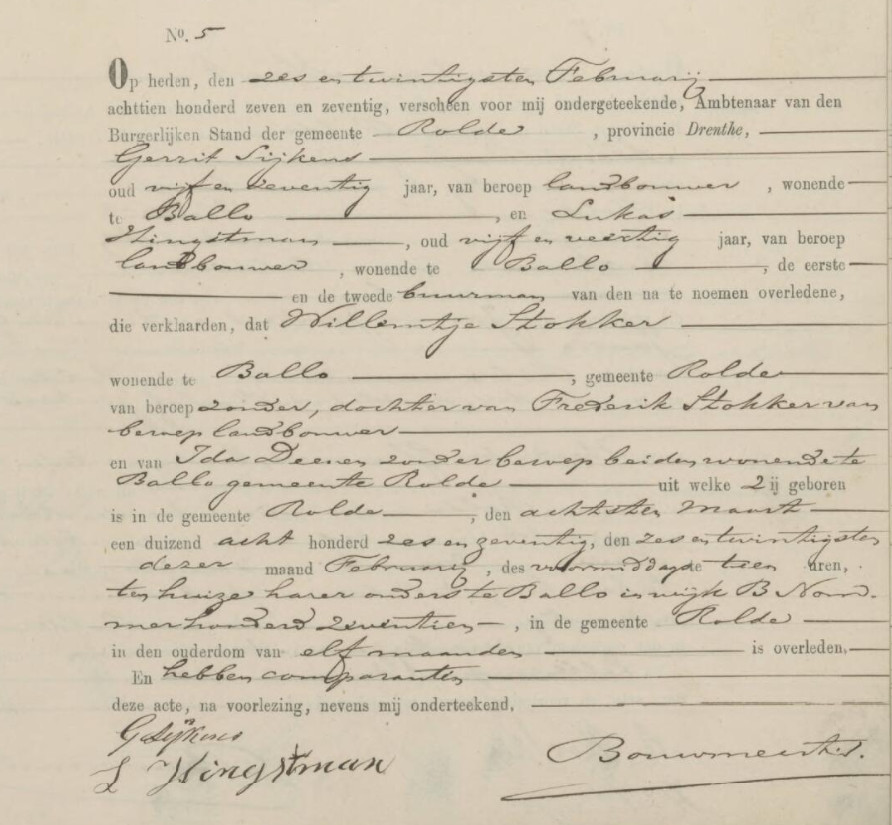 No. 5
Op heden, den zes en twintigsten Februarij
achttien honderd zeven en zeventig, verscheen voor mij ondergeteekende, Ambtenaar van den
Burgerlijken Stand der gemeente Rolde, provincie Drenthe,
Gerrit Sijkens
oud vijf en zeventig jaar, van beroep landbouwer, wonende
te Ballo, en Lukas
Hingstman, oud vijf en veertig jaar, van beroep
landbouwer, wonende te Ballo, de eerste
en de tweede buurman van den na te noemen overledene,
die verklaarden, dat Willemtje Stokker
wonende te Ballo, gemeente Rolde
van beroep zonder, dochter van Frederik Stokker van
beroep landbouwer
en van Ida Deenen zonder beroep beiden wonende te
Ballo gemeente Rolde uit welke 2ij geboren
is in de gemeente Rolde, den achtsten Maart
een duizend acht honderd zes en zeventig, den zes en twintigsten
dezer maand Februarij, des voormiddags te tien uren,
ten huize harer ouders te Ballo in wijk B Nom-
mer honderd zeventien, in de gemeente Rolde
in den ouderdom van elf maanden is overleden.
En hebben comparanten
deze acte, na voorlezing, nevens mij onderteekend.
G Sijkens
L Hingstman Bouwmeester.